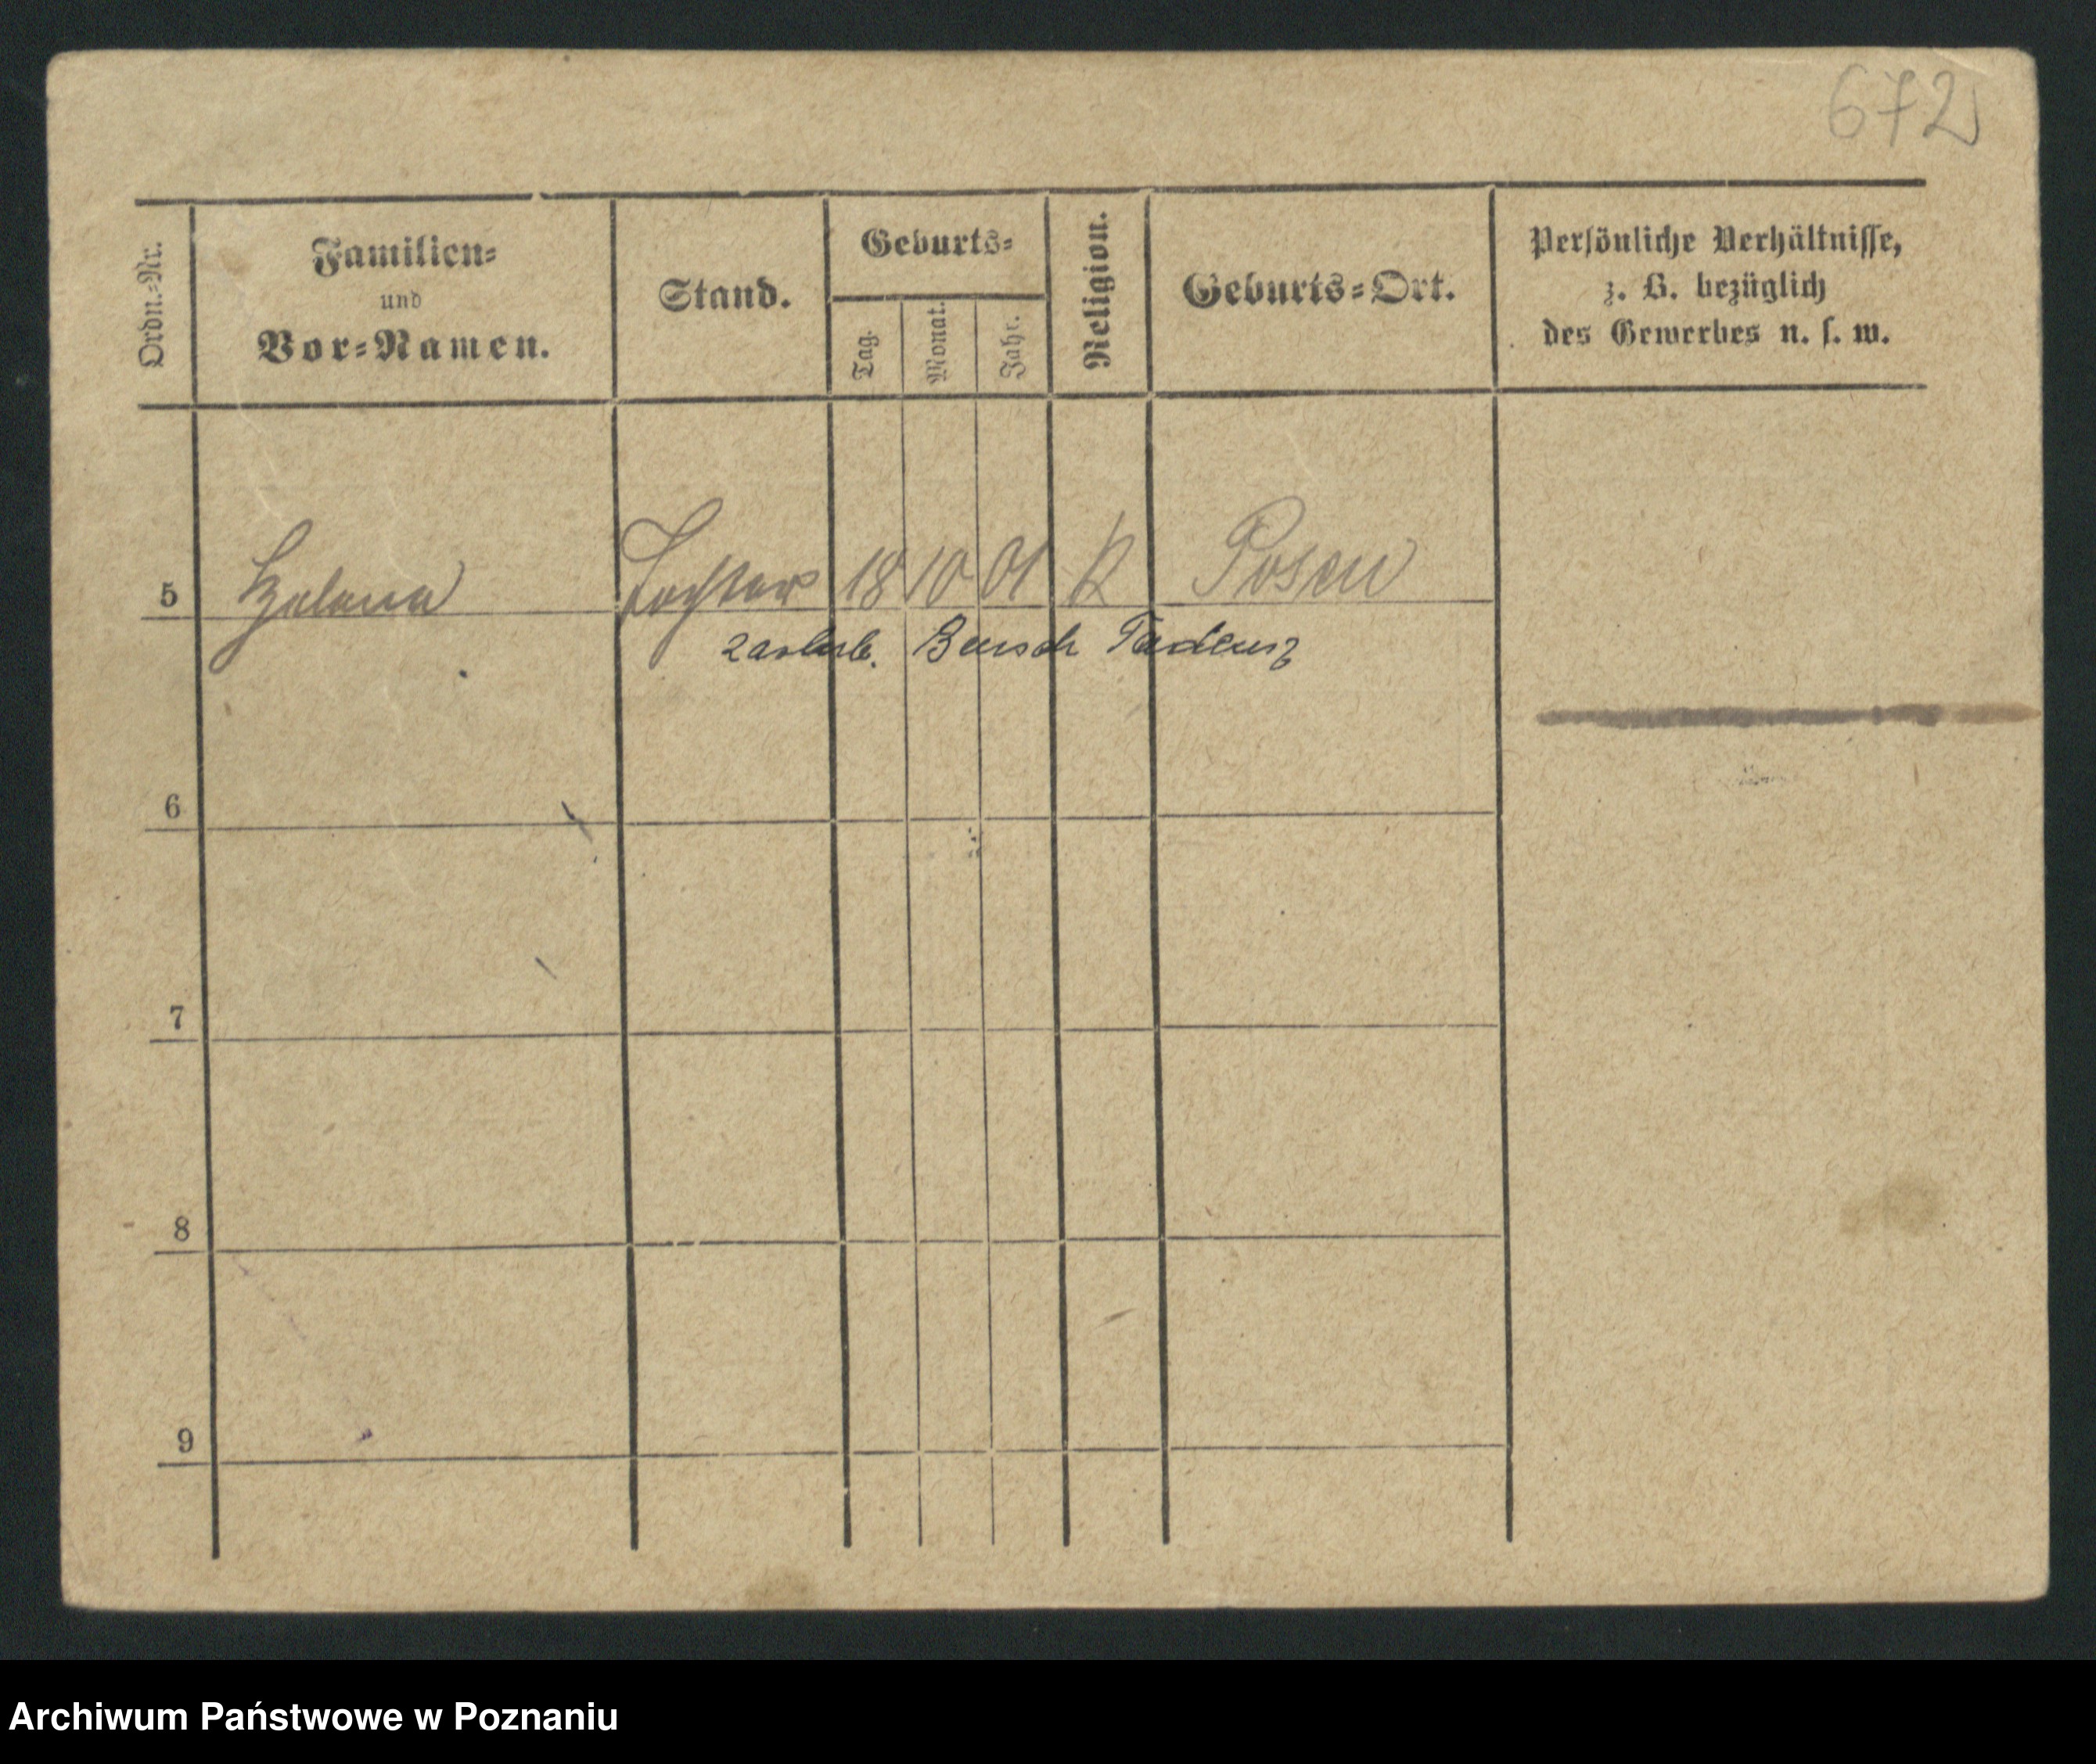 672
Ordn.=Nr.
Familien=
und
Vor=Namen.
Stand.
Geburts=
Tag.
Monat.
Jahr.
Religion.
Geburts=Ort.
Persönliche Verhältnisse,
z. B. bezüglich
des Gewerbes u. s. w.
5 Helena Tochter 18 10 01 K Posen
Bensch Tadeusz
6
7
8
9
Archiwum Państwowe w Poznaniu